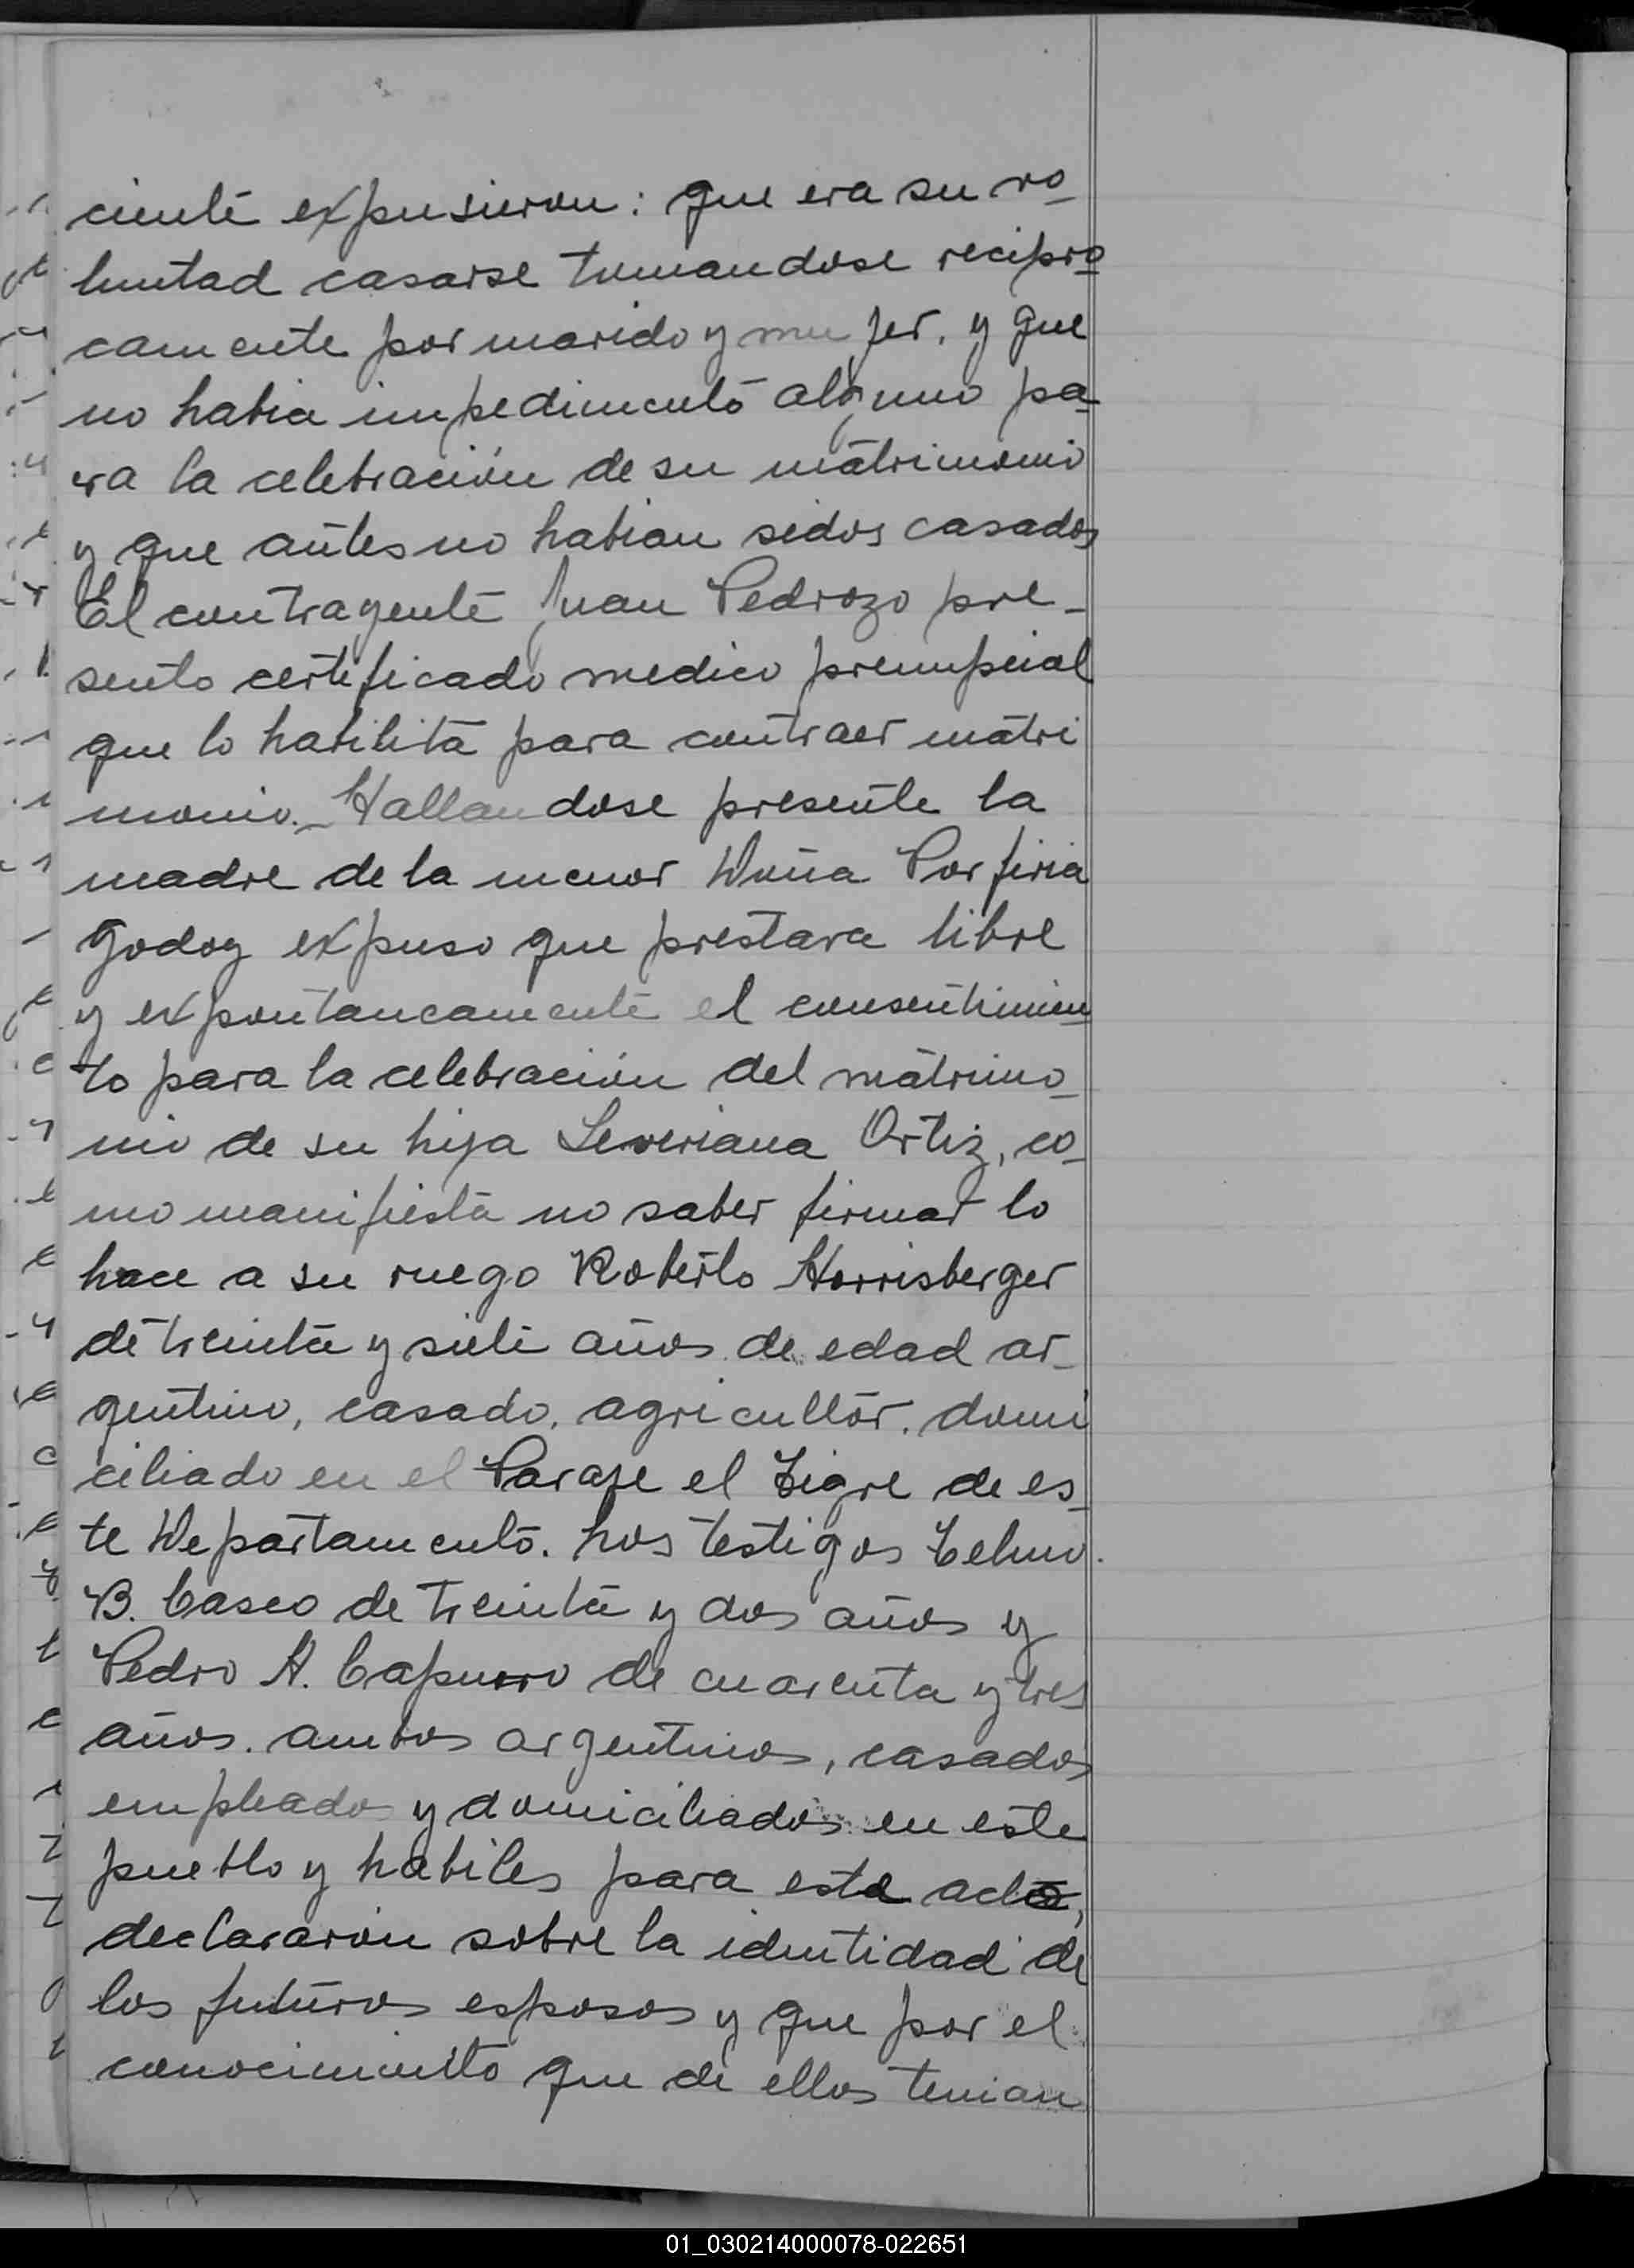 ciente expusieron: que era su vo_
luntad casarse tomandose recipro
camente por marido y mujer, y que
no habia impedimento alguno pa
ra la celebración de su matrimonio
y que antes no habian sidos casados
El contragente Juan Pedrozo pre_
sento certificado medico prenupcial
que lo habilita para contraer matri
monio._ Hallandose presente la
madre de la menor Doña Porfiria
Godoy expuso que prestava libre
y expontaneamente el consentimien
to para la celebración del matrimo_
nio de su hija Severiana Ortiz, co_
mo manifiesta no saber firmar lo
hace a su ruego Roberto Horrisberger
de treinta y siete años de edad ar_
gentino, casado, agricultor, domi
ciliado en el Paraje el Tigre de es_
te Departamento. Los testigos Telmo
B. Casco de treinta y dos años y
Pedro A. Capurro de cuarenta y tres
años. ambos argentinos, casados
empleados y domiciliados en este
pueblo y habiles para este acto,
declararon sobre la identidad de
los futuros esposos y que por el
conocimiento que de ellos tenian
01_030214000078-022651